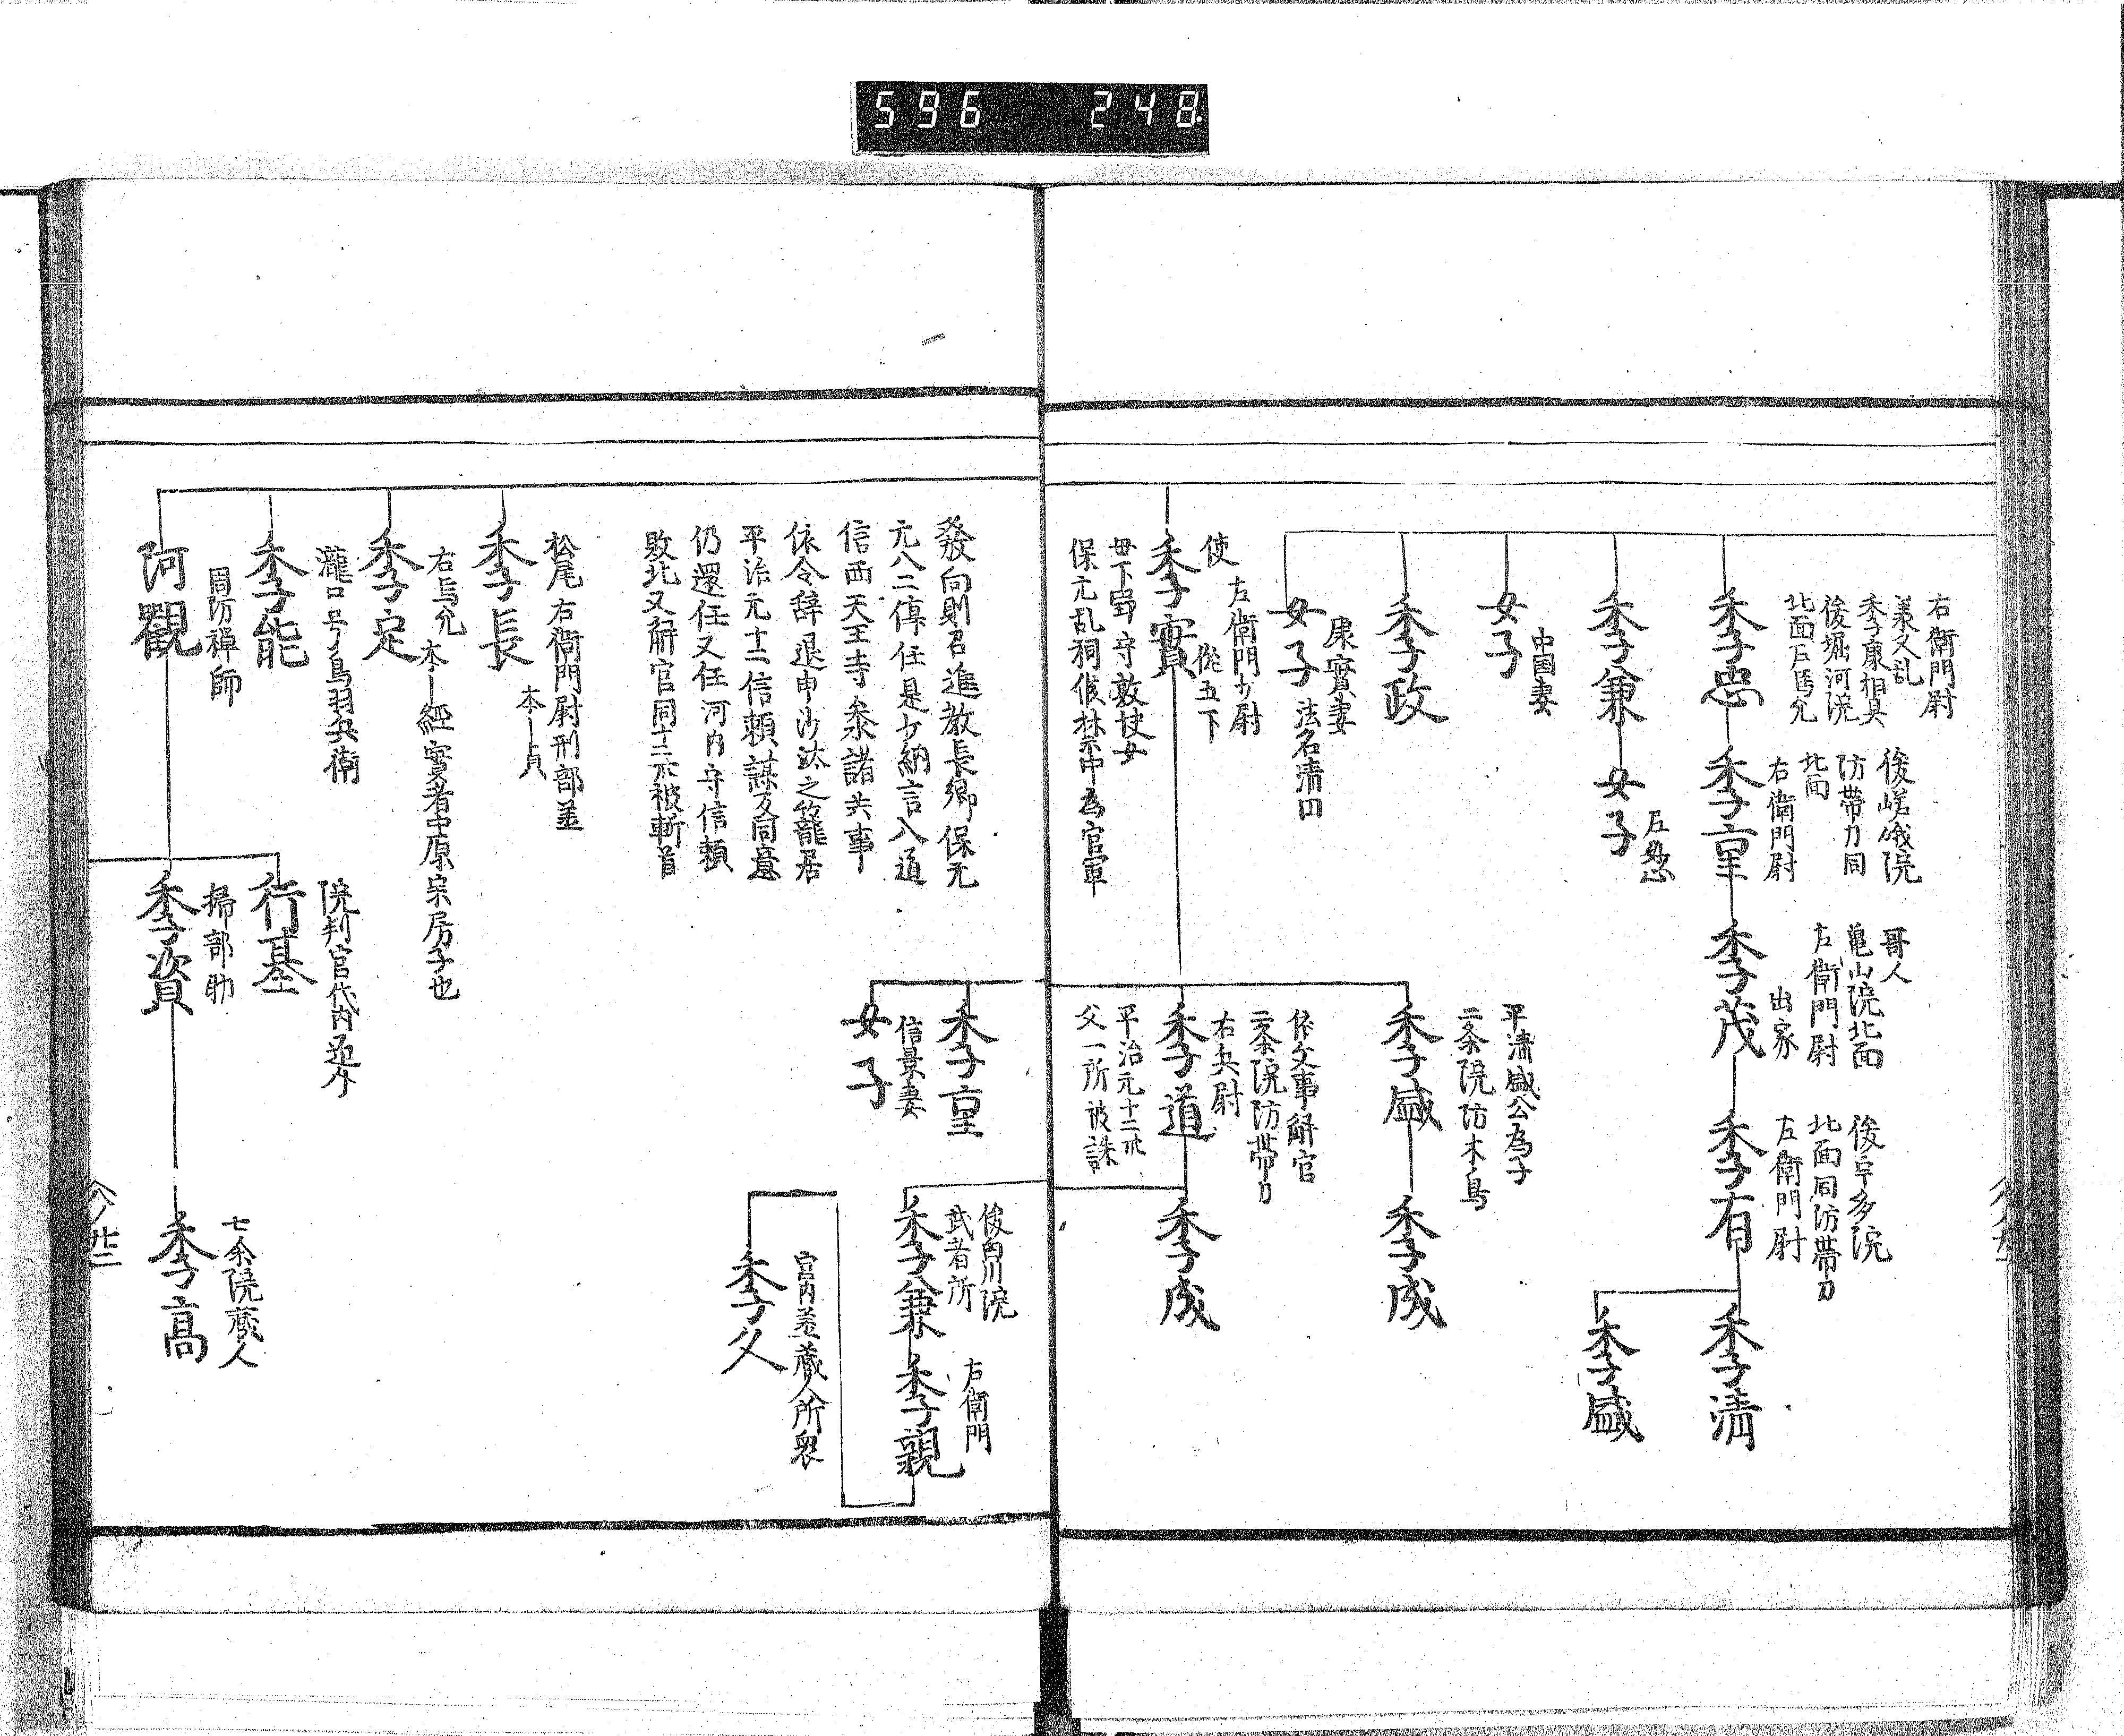 596 248
右衛門尉
承久乱
季康相具
後堀河院
北面左馬允
季忠
後嵯峨院
防帯刀同
北面
右衛門尉
季重
哥人
亀山院北面
左衛門尉
出家
季茂
後宇多院
北面同防帯刀
左衛門尉
季有
季清
季盛
季兼
女子
中国妻
女子
季政
康實妻
女子
法名清円
平清盛公為子
二条院防
季盛
季成
使
左衛門少尉
従五下
季實
母下守敦女
保元乱祠候禁中為官軍
依父事解官
二条院防帯刀
右兵尉
季道
平治元十二
父一所被誅
季成
季重
信景妻
女子
後白川院
武者所
季兼
左衛門
季親
宮内丞蔵人所衆
季久
發向則召進教長卿保元
元八二傳任是少納言入道
信西天王寺参諸共事
依令辞退申沙汰之籠居
平治元十二信頼謀反同意
仍還任又任河内守信頼
敗北又解官同十二被斬首
松尾 右衛門尉刑部丞
季長
本ー貞
右馬允
季定
本ー経 實者中原宗房子也
瀧口号鳥羽兵衛
季能
周防禅師
阿觀
院判官代内
行基
掃部助
季資
七条院蔵人
季高